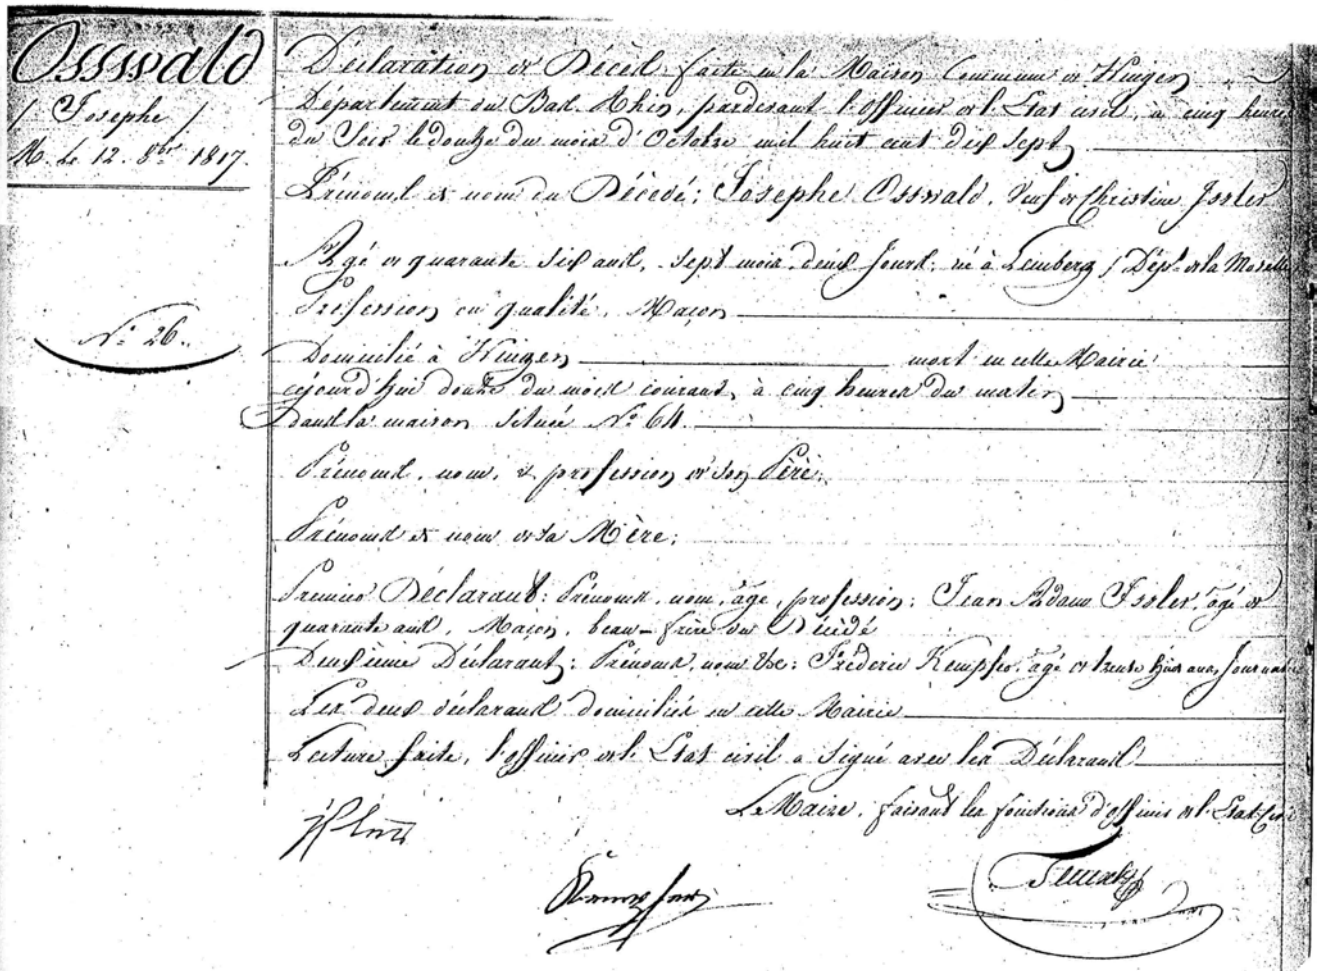 Ossswald
/ Josephe /
M. Le 12. 8bre 1817.
N.° 26.
Déclaration de Décès faite en la Maison Commune de Wingen
Département du Bas-Rhin, pardevant l'Officier de l'Etat civil, à cinq heures
du Soir le douze du mois d'Octobre mil huit cent dix sept
Prénoms et nom du Décédé: Josephe Ossswald, Veuf de Christine Issler
Agé de quarante six ans, sept mois, deux jours, né à Lemberg / Dépt. de la Moselle
Profession ou qualité, Maçon
Domicilié à Wingen mort en cette Mairie
cejourd'hui douze du mois courant, à cinq heures du matin
dans la maison située N° 64.
Prénoms, nom, et profession de son Père:
Prénoms et nom de sa Mère:
Premier Déclarant: Prénoms, nom, âge, profession: Jean Adam Issler, âgé de
quarante ans, Maçon, beau-frère du Décédé
Deuxième Déclarant: Prénoms, nom &c: Fréderic Kempfer, âgé de trente huit ans,
Les deux déclarans domiciliés en cette Mairie
Lecture faite, l'officier de l'Etat civil a signé avec les Déclarans
Le Maire, faisant les fonctions d'officier de l'Etat Civil
Kempfer